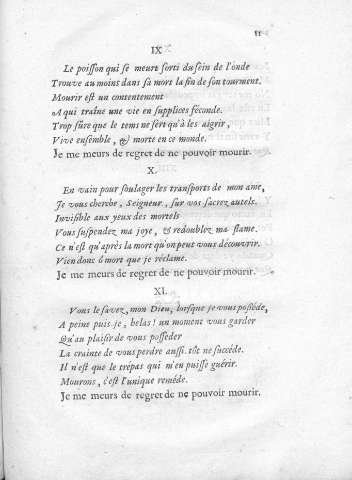 55
IX
Le poisson qui se meurt sorti du sein de l'onde
Trouve au moins dans sa mort la fin de son tourment.
Mourir est un contentement
A qui traîne une vie en supplices féconde.
Trop sûre que le tems ne sert qu'à les aigrir,
Vive ensemble, & morte en ce monde.
Je me meurs de regret de ne pouvoir mourir.
X.
En vain pour soulager les transports de mon ame,
Je vous cherche, Seigneur, sur vos sacrez autels.
Invisible aux yeux des mortels
Vous suspendez ma joye, & redoublez ma flame.
Ce n'est qu'après la mort qu'on peut vous découvrir.
Vien donc ô mort que je réclame.
Je me meurs de regret de ne pouvoir mourir.
XI.
Vous le savez, mon Dieu, lorsque je vous possède,
A peine puis-je, helas! un moment vous garder
Qu'au plaisir de vous posseder
La crainte de vous perdre aussi-tôt ne succède.
Il n'est que le trépas qui m'en puisse guérir.
Mourons, c'est l'unique remède.
Je me meurs de regret de ne pouvoir mourir.